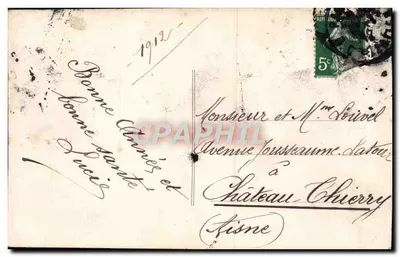 1912
Bonne Année et
bonne santé
Lucie
5c
Monsieur et Mme Louvel
Avenue Jousseaume Latour
à
Château-Thierry
(Aisne)
CPAPHIL